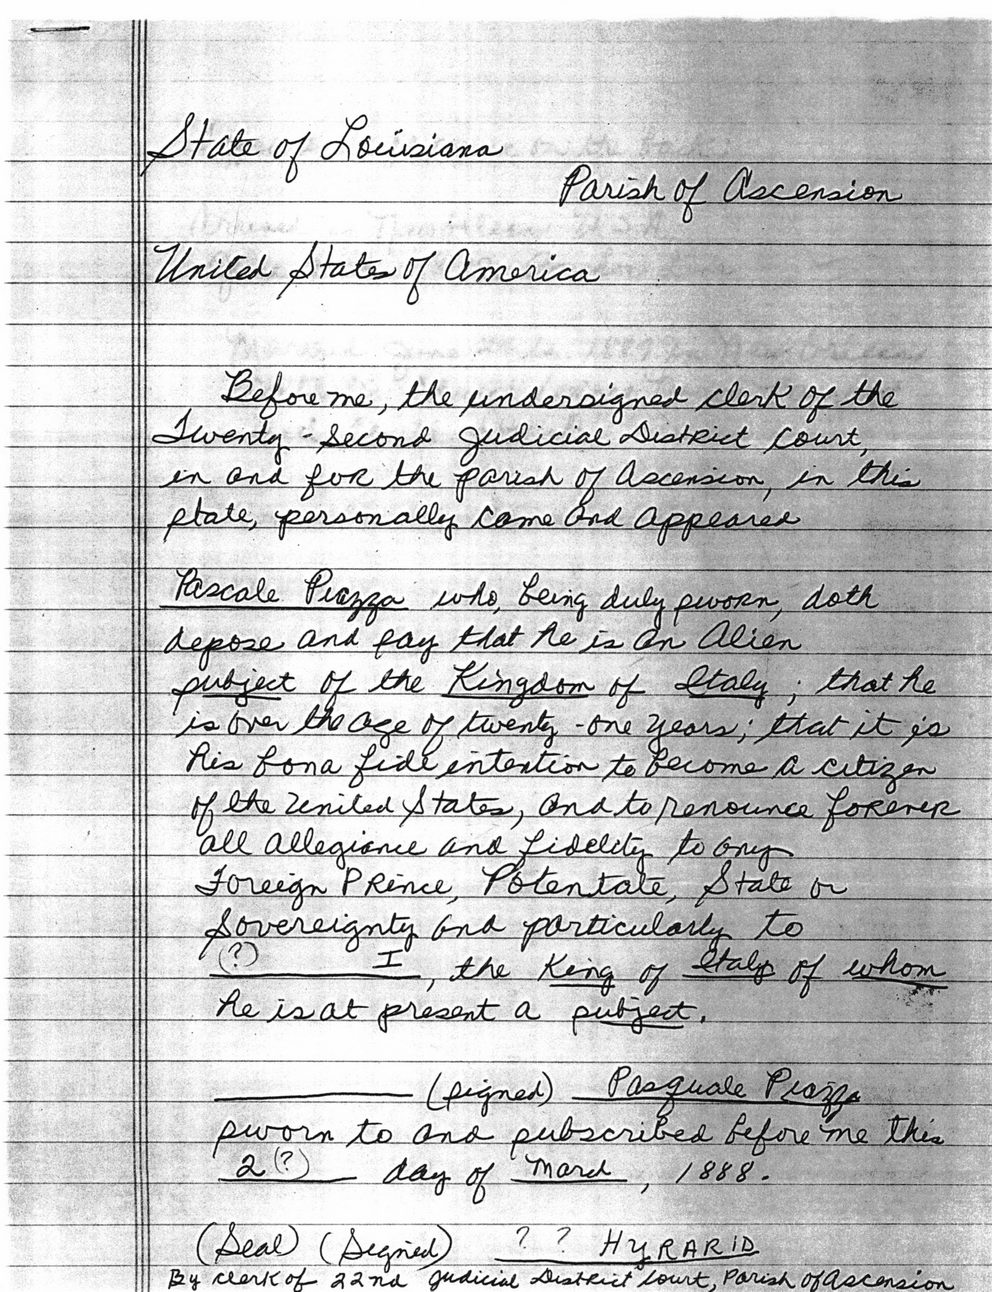 State of Louisiana
Parish of Ascension
United States of America
Before me, the undersigned clerk of the
Twenty-Second Judicial District Court,
in and for the parish of Ascension, in this
state, personally came and appeared
Pascale Piazza who, being duly sworn, doth
depose and say that he is an Alien
subject of the Kingdom of Italy; that he
is over the age of twenty-one years; that it is
his bona fide intention to become a citizen
of the United States, and to renounce forever
all allegiance and fidelity to any
Foreign Prince, Potentate, State or
Sovereignty and particularly to
(?) I, the King of Italy of whom
he is at present a subject.
(signed) Pasquale Piazza
sworn to and subscribed before me this
2(?) day of March, 1888.
(Seal) (Signed) ? ? HYRARID
By clerk of 22nd Judicial District Court, Parish of Ascension